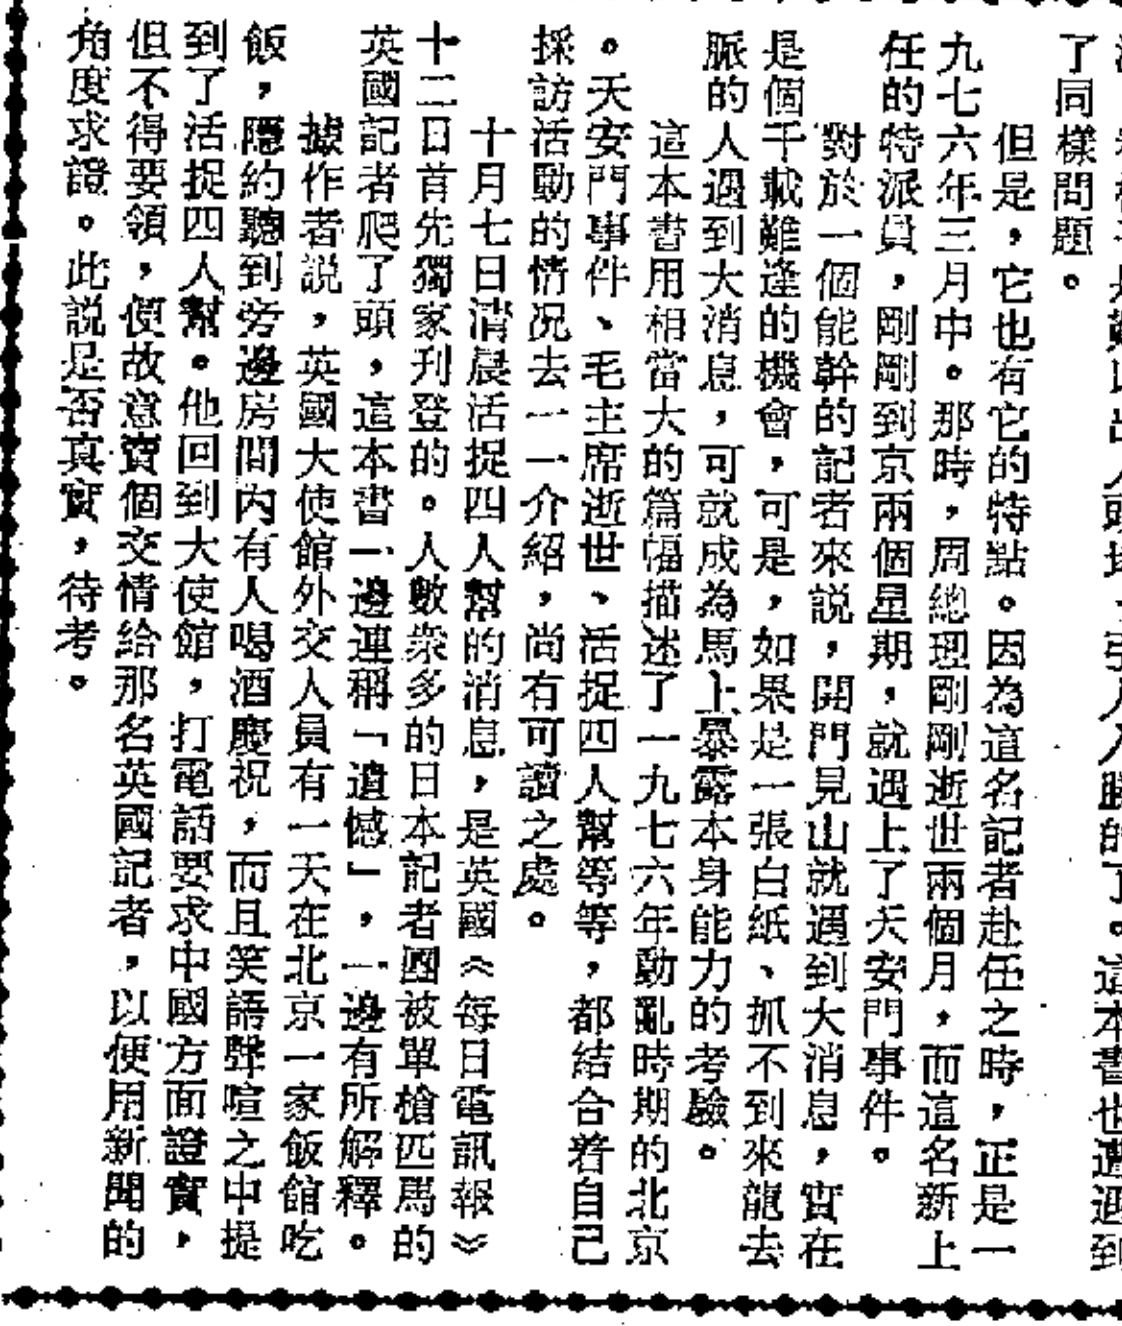 是難以出人頭地、引人入勝的了。這本書也遭遇到
了同樣問題。
但是，它也有它的特點。因為這名記者赴任之時，正是一
九七六年三月中。那時，周總理剛剛逝世兩個月，而這名新上
任的特派員，剛剛到京兩個星期，就遇上了天安門事件。
對於一個能幹的記者來説，開門見山就遇到大消息，實在
是個千載難逢的機會，可是，如果是一張白紙、抓不到來龍去
脈的人遇到大消息，可就成為馬上暴露本身能力的考驗。
這本書用相當大的篇幅描述了一九七六年動亂時期的北京
。天安門事件、毛主席逝世、活捉四人幫等等，都結合着自己
採訪活動的情況去一一介紹，尚有可讀之處。
十月七日清晨活捉四人幫的消息，是英國《每日電訊報》
十二日首先獨家刊登的。人數衆多的日本記者團被單槍匹馬的
英國記者爬了頭，這本書一邊連稱「遺憾」，一邊有所解釋。
據作者説，英國大使館外交人員有一天在北京一家飯館吃
飯，隱約聽到旁邊房間內有人喝酒慶祝，而且笑語聲喧之中提
到了活捉四人幫。他回到大使館，打電話要求中國方面證實，
但不得要領，便故意賣個交情給那名英國記者，以便用新聞的
角度求證。此説是否真實，待考。